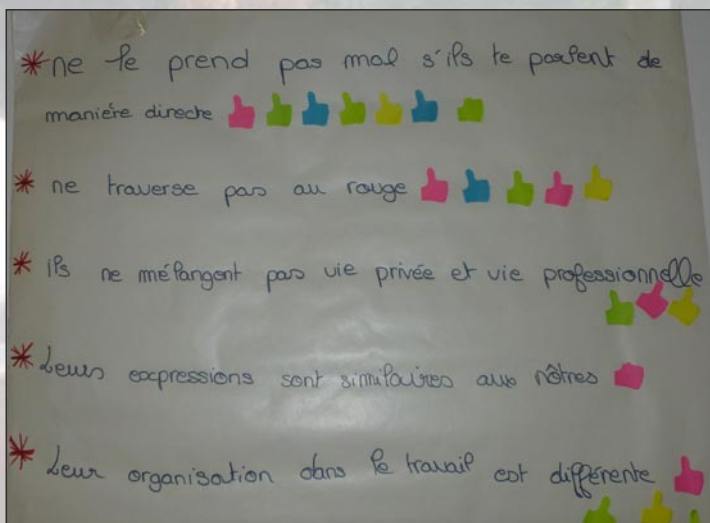 * ne le prend pas mal s'ils te parlent de
manière directe
* ne traverse pas au rouge
* ils ne mélangent pas vie privée et vie professionnelle
* Leurs expressions sont similaires aux nôtres
* Leur organisation dans le travail est différente